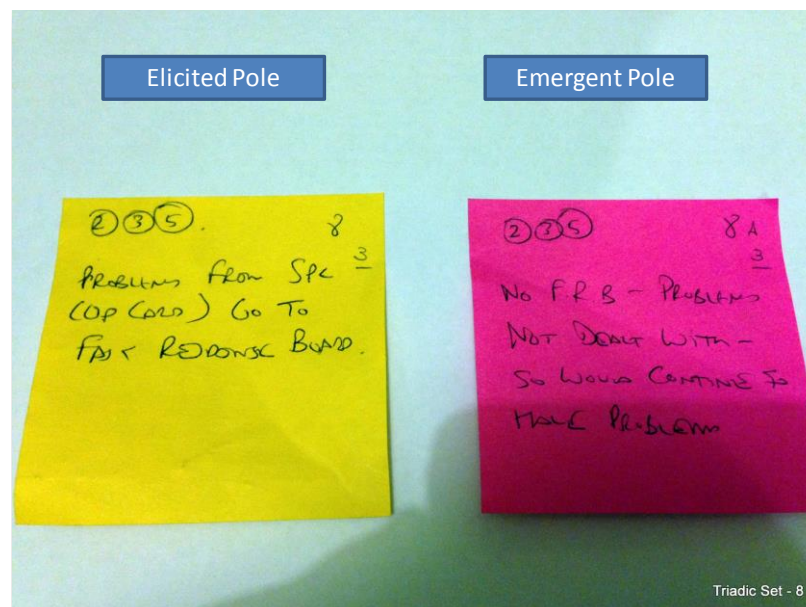 Elicited Pole
Emergent Pole
2 3 5. 8
3
PROBLEMS FROM SPC
(OP CARD) GO TO
FAST RESPONSE BOARD.
2 3 5 8 A
3
NO F.R B - PROBLEMS
NOT DEALT WITH -
SO WOULD CONTINUE TO
HAVE PROBLEMS
Triadic Set - 8